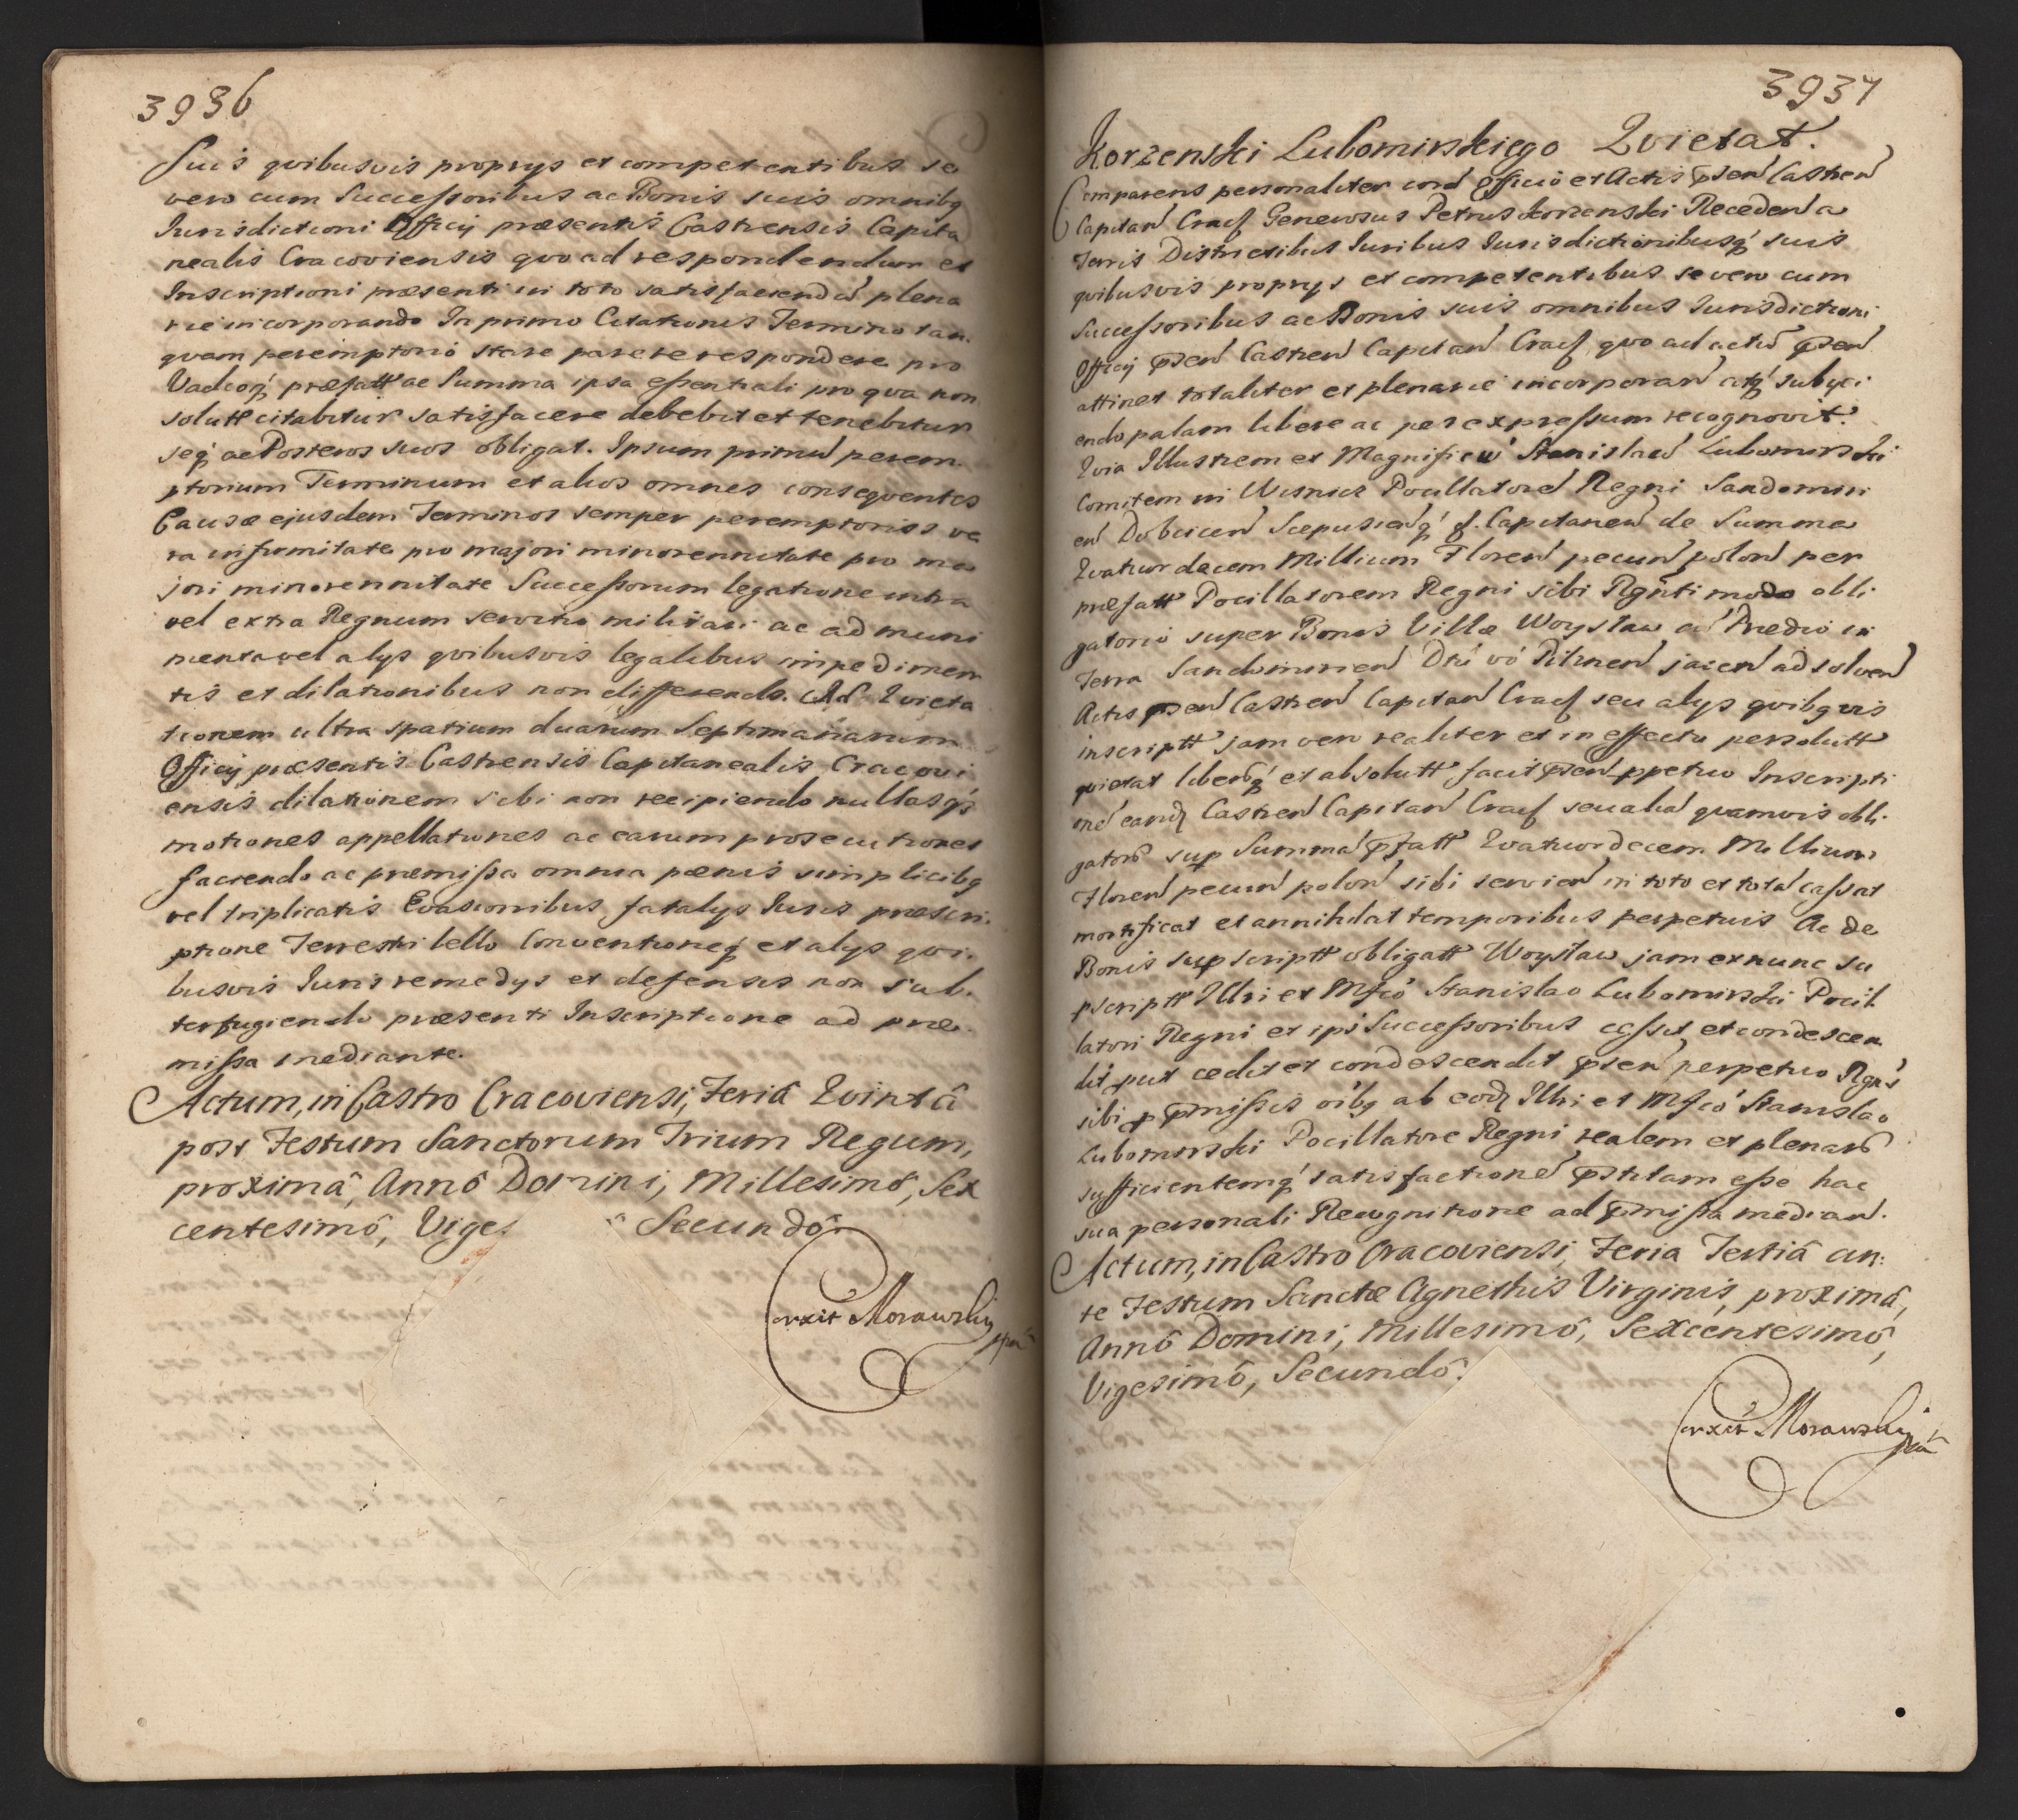 3936
Suis qvibusvis proprys et competentibus se
vero cum Successoribus ac Bonis suis omnibq
Iurisdictioni Officij præsentis Castrensis Capita
nealis Cracoviensis qvo ad respondendum et
Inscriptioni præsenti in toto satisfaciendū plena
rie incorporando In primo Citationis Termino tan.
qvam peremptorio stare parere respondere pro
Vadioq præfatt ac Summa ipsa essentiali pro qva non
solutt citabitur satisfacere debebit et tenebitur
seq ac Posteros suos obligat. Ipsum primū perem.
ptorium Terminum et alios omnes conseqventes
Causæ ejusdem Terminos semper peremptorios ve
ra infirmitate pro majori minorennitate pro ma
jori minorennitate Successorum legatione intra
vel extra Regnum servitio militari ac ad muni
menta vel alys qvibusvis legalibus impedimen
tis et dilationibus non differendo. Ad Evicta
tionem ultra spatium duarum Septimanarum
Officij præsentis Castrensis Capitanealis Cracovi
ensis dilationem sibi non recipiendo nullasq
motiones appellationes ac earum prosecutiones
faciendo ac præmissa omnia pœnis simplicibq
vel triplicatis Evasionibus fatalys Iuris præscri.
ptione Terrestri bello Conventioneq et alys qvi.
busvis Iuris remedys et defensis non sub.
terfugiendo præsenti Inscriptione ad præ.
missa mediante.
Actum, in Castro Cracoviensi, Feriâ Qvintâ
post Festum Sanctorum Trium Regum,
proximâ, Annô Domini, Millesimô, Sex
centesimô, Viges Secundô.
Correxit Morawsky
3937
Korzenski Lubomirskiego Qvietat.
Comparens personaliter corā Officio et Actis pſen Castren
Capitan Cracſ Generosus Petrus Korzenski Receden a
Terris Districtibus Iuribus Iurisdictionibusq suis
qvibusvis proprys et competentibus se vero cum
Successoribus ac Bonis suis omnibus Iurisdictioni
Officij pſen Castren Capitan Cracſ, qvo ad actū pſen
attinet totaliter et plenarie incorporan atq subyci
endo palam libere ac per expressum recognovit.
Qvia Illustrem et Magnificū Stanislaū Lubomirski
Comitem in Wisnicz Pocillatorē Regni Sandomiri
en Dobcicen Scepusienq & Capitaneū de Summa
Qvatuordecem Millium Floren pecun polon per
præfatt Pocillatorem Regni sibi Rgnti modo obli
gatorio super Bonis Villæ Woysław cū Prædio in
Terra Sandomirien Dtū vō Pilznen jacen ad solven
Actis pſen Castren Capitan Cracſ seu alys qvibq vis
inscriptt jam vero realiter et in effectu persolutt
qvietat liberūq et absolutt facit pſen ppetuo Inscripti
onē eand Castren Capitan Cracſ seu aliā qvamvis obli.
gatorō sup Summā pfatt Qvatuordecem Millium
Floren pecun polon sibi servien in toto et totā cassat
mortificat et annihilat temporibus perpetuis Ac de
Bonis sup scriptt obligatt Woysław jam ex nunc su
pscriptt Illri et Mfcō Stanislao Lubomirski Pocil
latori Regni et ipś Successoribus cessit et condescen
dit put cedit et condescendit pſen perpetuo Rgns
sibi p pmissis oībq ab eod Illri et Mfcō Stanislao
Lubomirski Pocillatore Regni realem et plenarō
sufficientemq satisfactionē pstitam esse hac
sua personali Recognitione ad pmissa median.
Actum, in Castro Cracoviensi, Feria Tertiâ an:
te Festum Sanctæ Agnethis Virginis, proximâ,
Annô Domini, Millesimô, Sexcentesimô,
Vigesimô, Secundô.
Correxit Morawsky